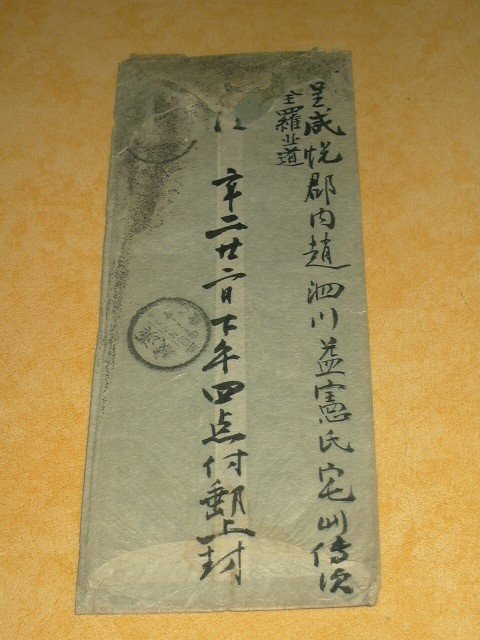 呈咸悅郡內趙泗川益憲氏宅傳次
全羅北道
辛二廿二日下午四点付郵上封